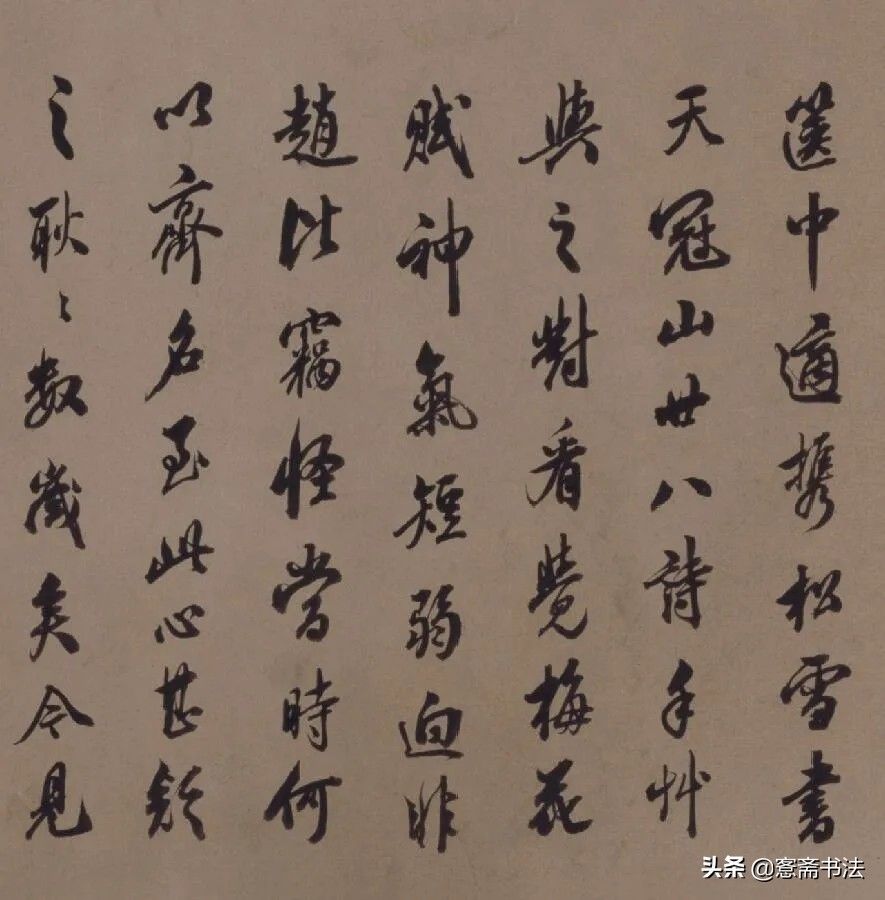 篋中適携松雪書
天冠山廿八詩手艸
與之對看覺梅花
賦神氣短弱逈非
趙比竊怪當時何
以齊名至此心甚疑
之耿〻数歲矣今見
头条 @愙斋书法